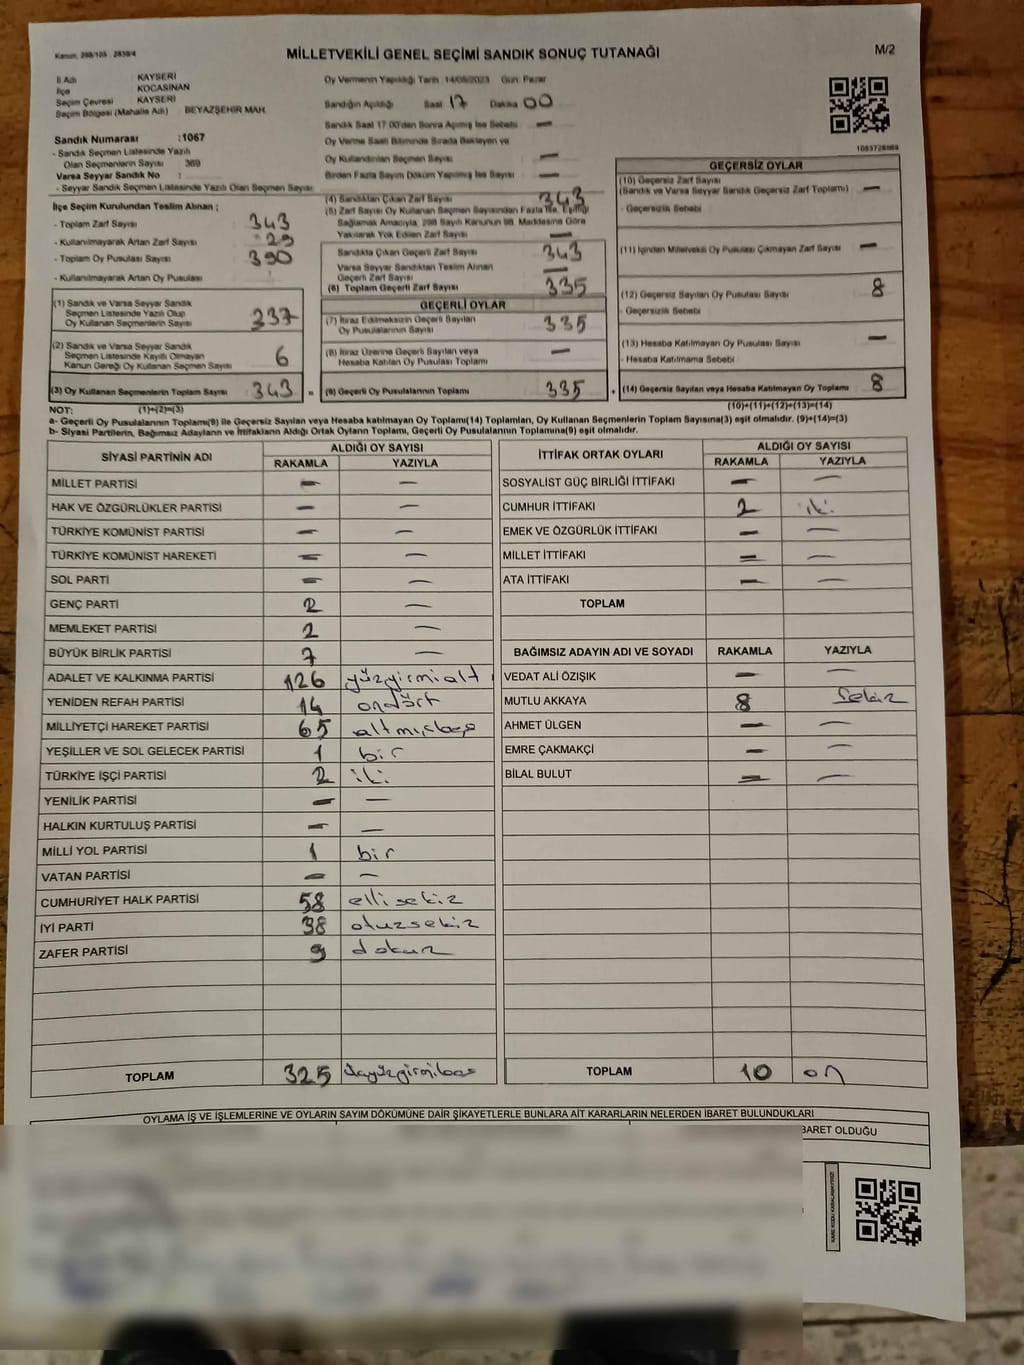 Kanun, 298/105 2839/4
MİLLETVEKİLİ GENEL SEÇİMİ SANDIK SONUÇ TUTANAĞI
M/2
İl Adı KAYSERİ
İlçe KOCASİNAN
Seçim Çevresi KAYSERİ
Seçim Bölgesi (Mahalle Adı) : BEYAZŞEHİR MAH.
Oy Vermenin Yapıldığı Tarih :14/05/2023 Gün: Pazar
Sandığın Açıldığı Saat 17 Dakika 00
Sandık Saat 17:00'dan Sonra Açılmış İse Sebebi : —
Oy Verme Saati Bitiminde Sırada Bekleyen ve
Oy Kullandırılan Seçmen Sayısı —
Birden Fazla Sayım Döküm Yapılmış İse Sayısı —
Sandık Numarası :1067
- Sandık Seçmen Listesinde Yazılı
Olan Seçmenlerin Sayısı 369
Varsa Seyyar Sandık No :
- Seyyar Sandık Seçmen Listesinde Yazılı Olan Seçmen Sayısı
İlçe Seçim Kurulundan Teslim Alınan ;
- Toplam Zarf Sayısı 343
- Kullanılmayarak Artan Zarf Sayısı
- Toplam Oy Pusulası Sayısı 390
- Kullanılmayarak Artan Oy Pusulası
(1) Sandık ve Varsa Seyyar Sandık
Seçmen Listesinde Yazılı Olup
Oy Kullanan Seçmenlerin Sayısı 337
(2) Sandık ve Varsa Seyyar Sandık
Seçmen Listesinde Kayıtlı Olmayan
Kanun Gereği Oy Kullanan Seçmen Sayısı 6
(3) Oy Kullanan Seçmenlerin Toplam Sayısı 343 =
(4) Sandıktan Çıkan Zarf Sayısı 343
(5) Zarf Sayısı Oy Kullanan Seçmen Sayısından Fazla İse, Eşitliği
Sağlamak Amacıyla, 298 Sayılı Kanunun 98. Maddesine Göre
Yakılarak Yok Edilen Zarf Sayısı —
Sandıkta Çıkan Geçerli Zarf Sayısı 343
Varsa Seyyar Sandıktan Teslim Alınan
Geçerli Zarf Sayısı —
(6) Toplam Geçerli Zarf Sayısı 335
GEÇERLİ OYLAR
(7) İtiraz Edilmeksizin Geçerli Sayılan
Oy Pusulalarının Sayısı 335
(8) İtiraz Üzerine Geçerli Sayılan veya
Hesaba Katılan Oy Pusulası Toplamı —
(9) Geçerli Oy Pusulalarının Toplamı 335 +
1083728869
GEÇERSİZ OYLAR
(10) Geçersiz Zarf Sayısı
(Sandık ve Varsa Seyyar Sandık Geçersiz Zarf Toplamı) —
- Geçersizlik Sebebi
(11) İçinden Milletvekili Oy Pusulası Çıkmayan Zarf Sayısı —
(12) Geçersiz Sayılan Oy Pusulası Sayısı 8
- Geçersizlik Sebebi
(13) Hesaba Katılmayan Oy Pusulası Sayısı —
- Hesaba Katılmama Sebebi
(14) Geçersiz Sayılan veya Hesaba Katılmayan Oy Toplamı 8
NOT: (1)+(2)=(3)
(10)+(11)+(12)+(13)=(14)
a- Geçerli Oy Pusulalarının Toplamı(9) ile Geçersiz Sayılan veya Hesaba katılmayan Oy Toplamı(14) Toplamları, Oy Kullanan Seçmenlerin Toplam Sayısına(3) eşit olmalıdır. (9)+(14)=(3)
b- Siyasi Partilerin, Bağımsız Adayların ve İttifakların Aldığı Ortak Oyların Toplamı, Geçerli Oy Pusulalarının Toplamına(9) eşit olmalıdır.
SİYASİ PARTİNİN ADI ALDIĞI OY SAYISI
RAKAMLA YAZIYLA
MİLLET PARTİSİ — —
HAK VE ÖZGÜRLÜKLER PARTİSİ — —
TÜRKİYE KOMÜNİST PARTİSİ — —
TÜRKİYE KOMÜNİST HAREKETİ — —
SOL PARTİ — —
GENÇ PARTİ 2 —
MEMLEKET PARTİSİ 2 —
BÜYÜK BİRLİK PARTİSİ 7 —
ADALET VE KALKINMA PARTİSİ 126 yüzyirmialtı
YENİDEN REFAH PARTİSİ 14 ondört
MİLLİYETÇİ HAREKET PARTİSİ 65 altmışbeş
YEŞİLLER VE SOL GELECEK PARTİSİ 1 bir
TÜRKİYE İŞÇİ PARTİSİ 2 iki
YENİLİK PARTİSİ — —
HALKIN KURTULUŞ PARTİSİ — —
MİLLİ YOL PARTİSİ 1 bir
VATAN PARTİSİ — —
CUMHURİYET HALK PARTİSİ 58 ellisekiz
İYİ PARTİ 38 otuzsekiz
ZAFER PARTİSİ 9 dokuz
TOPLAM 325 üçyüzyirmibeş
İTTİFAK ORTAK OYLARI ALDIĞI OY SAYISI
RAKAMLA YAZIYLA
SOSYALİST GÜÇ BİRLİĞİ İTTİFAKI — —
CUMHUR İTTİFAKI 2 iki
EMEK VE ÖZGÜRLÜK İTTİFAKI — —
MİLLET İTTİFAKI — —
ATA İTTİFAKI — —
TOPLAM
BAĞIMSIZ ADAYIN ADI VE SOYADI RAKAMLA YAZIYLA
VEDAT ALİ ÖZIŞIK — —
MUTLU AKKAYA 8 Sekiz
AHMET ÜLGEN — —
EMRE ÇAKMAKÇİ — —
BİLAL BULUT — —
TOPLAM 10 on
OYLAMA İŞ VE İŞLEMLERİNE VE OYLARIN SAYIM DÖKÜMÜNE DAİR ŞİKAYETLERLE BUNLARA AİT KARARLARIN NELERDEN İBARET BULUNDUKLARI
BARET OLDUĞU